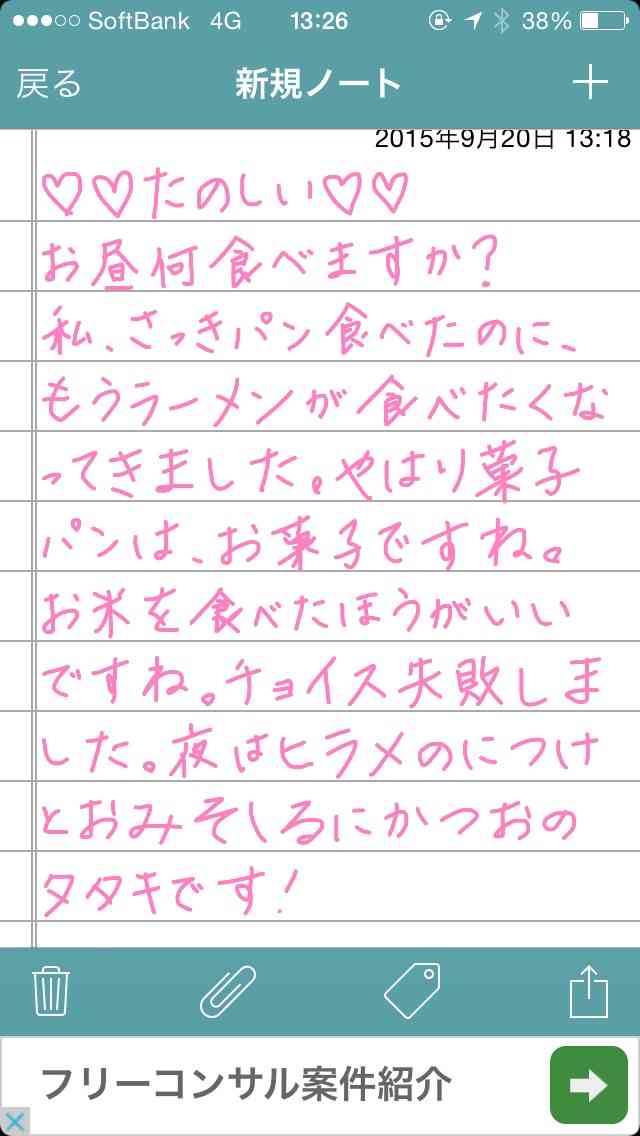 ●●●○○ SoftBank 4G 13:26 38%
戻る 新規ノート +
2015年9月20日 13:18
♡♡たのしい♡♡
お昼何食べますか?
私、さっきパン食べたのに、
もうラーメンが食べたくな
ってきました。やはり菓子
パンは、お菓子ですね。
お米を食べたほうがいい
ですね。チョイス失敗しま
した。夜はヒラメのにつけ
とおみそしるにかつおの
タタキです!
フリーコンサル案件紹介